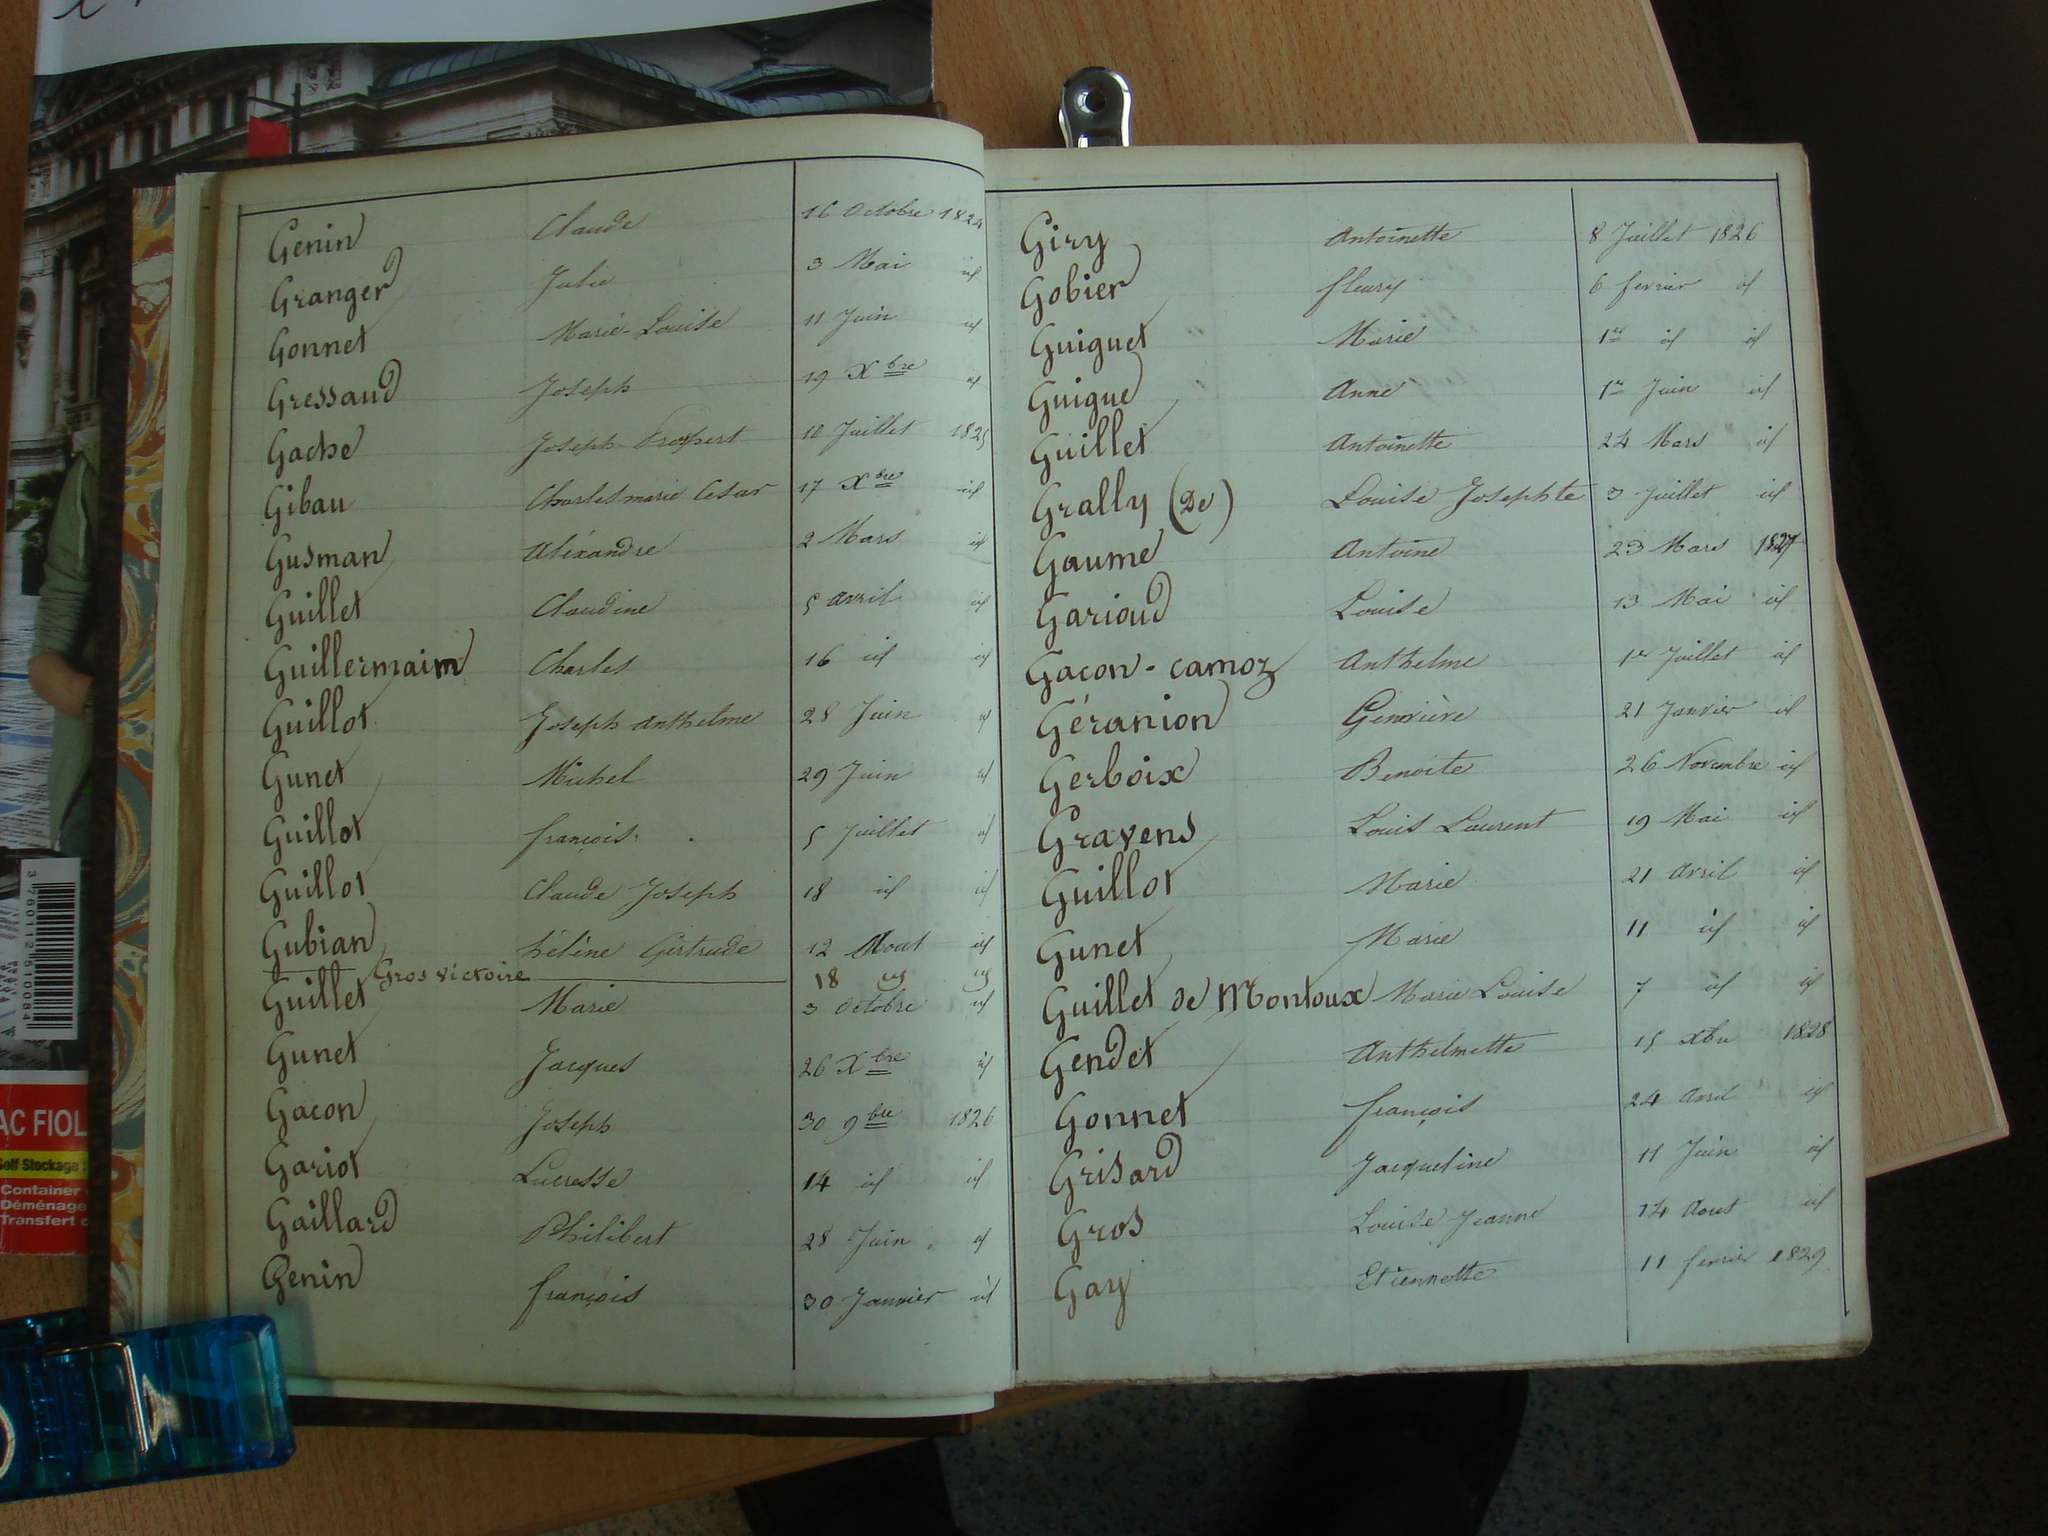 Genin Claude 16 Octobre 1824
Granger Julie 3 Mai id
Gonnet Marie-Louise 11 Juin id
Gressaud Joseph 19 Xbre id
Gache Joseph-Prospert 10 Juillet 1825
Gibau Charles marie Cesar 17 Xbre id
Gusman Aléxandre 2 Mars id
Guillet Claudine 5 avril id
Guillermaim Charles 16 id id
Guillot Joseph anthelme 28 Juin id
Gunet Michel 29 Juin id
Guillot françois 5 Juillet id
Guillot Claude Joseph 18 id id
Gubian hélène Gertrude 12 Aout id
Gros victoire 18 id id
Guillet Marie 3 Octobre id
Gunet Jacques 26 Xbre id
Gacon Joseph 30 9bre 1826
Gariot Lucresse 14 id id
Gaillard Philibert 28 Juin id
Genin françois 30 Janvier id
Giry Antoinette 8 Juillet 1826
Gobier fleury 6 fevrier id
Guiguet Marie 1er id id
Guigue Anne 1er Juin id
Guillet Antoinette 24 Mars id
Grally (De) Louise Josephte 3 Juillet id
Gaume Antoine 23 Mars 1827
Garioud Louise 13 Mai id
Gacon-camoz Anthelme 1er Juillet id
Géranion Genviève 21 Janvier id
Gerboix Benoite 26 Novembre id
Gravens Louis Laurent 19 Mai id
Guillot Marie 21 Avril id
Gunet Marie 11 id id
Guillet de Montoux Marie Louise 7 id id
Gendet Anthelmette 15 xbre 1828
Gonnet françois 24 Avril id
Grisard Jacqueline 11 Juin id
Gros Louise-Jeanne 14 Aout id
Gay Etiennette 11 fevrier 1829
3 760112 510084
AC FIOL
Self Stockage
Container
Déménage
Transfert